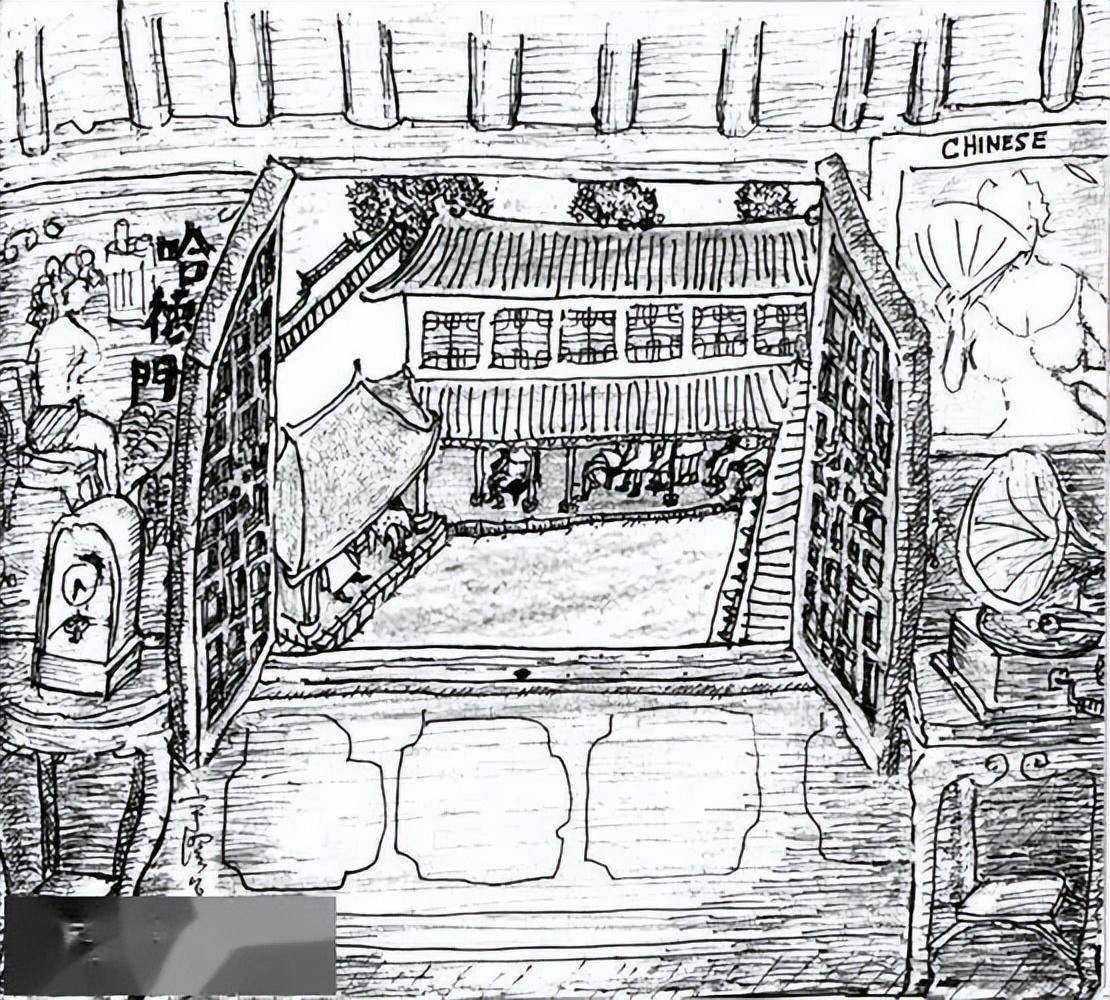 哈德門
CHINESE